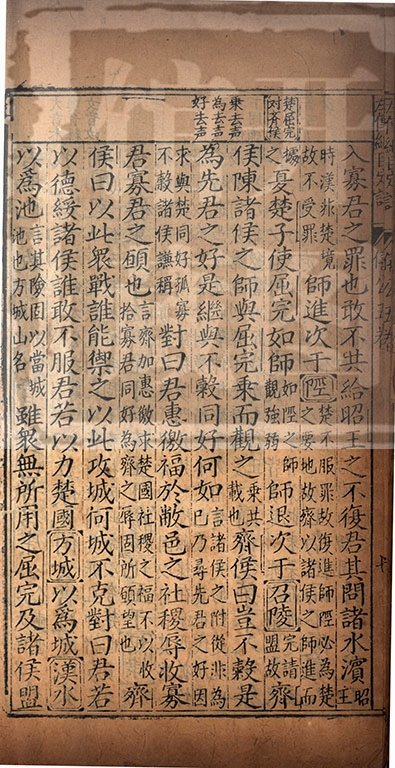 入寡君之罪也敢不共給昭王之不復君其問諸水濱昭王
時漢非楚竟故不受罪師進次于陘楚不服罪故復進師陘必為楚之要地故齊以諸侯之師進而
據之夏楚子使屈完如師如陘之師觀強弱師退次于召陵完請盟故齊
侯陳諸侯之師與屈完乘而觀之乘共載也齊侯曰豈不穀是
為先君之好是繼與不穀同好何如言諸侯之附從非為己乃尋先君之好因
求與楚同好孤寡不穀諸侯謙稱對曰君惠徼福於敝邑之社稷辱收寡
君寡君之願也言齊加惠徼求楚國社稷之福不以收拾寡君同好為齊之辱因所願望也齊
侯曰以此衆戰誰能禦之以此攻城何城不克對曰君若
以德綏諸侯誰敢不服君若以力楚國方城以為城漢水
以為池言其險固以當城池也方城山名雖衆無所用之屈完及諸侯盟
楚屈完
対齐侯
乘去声
為去声
好去声